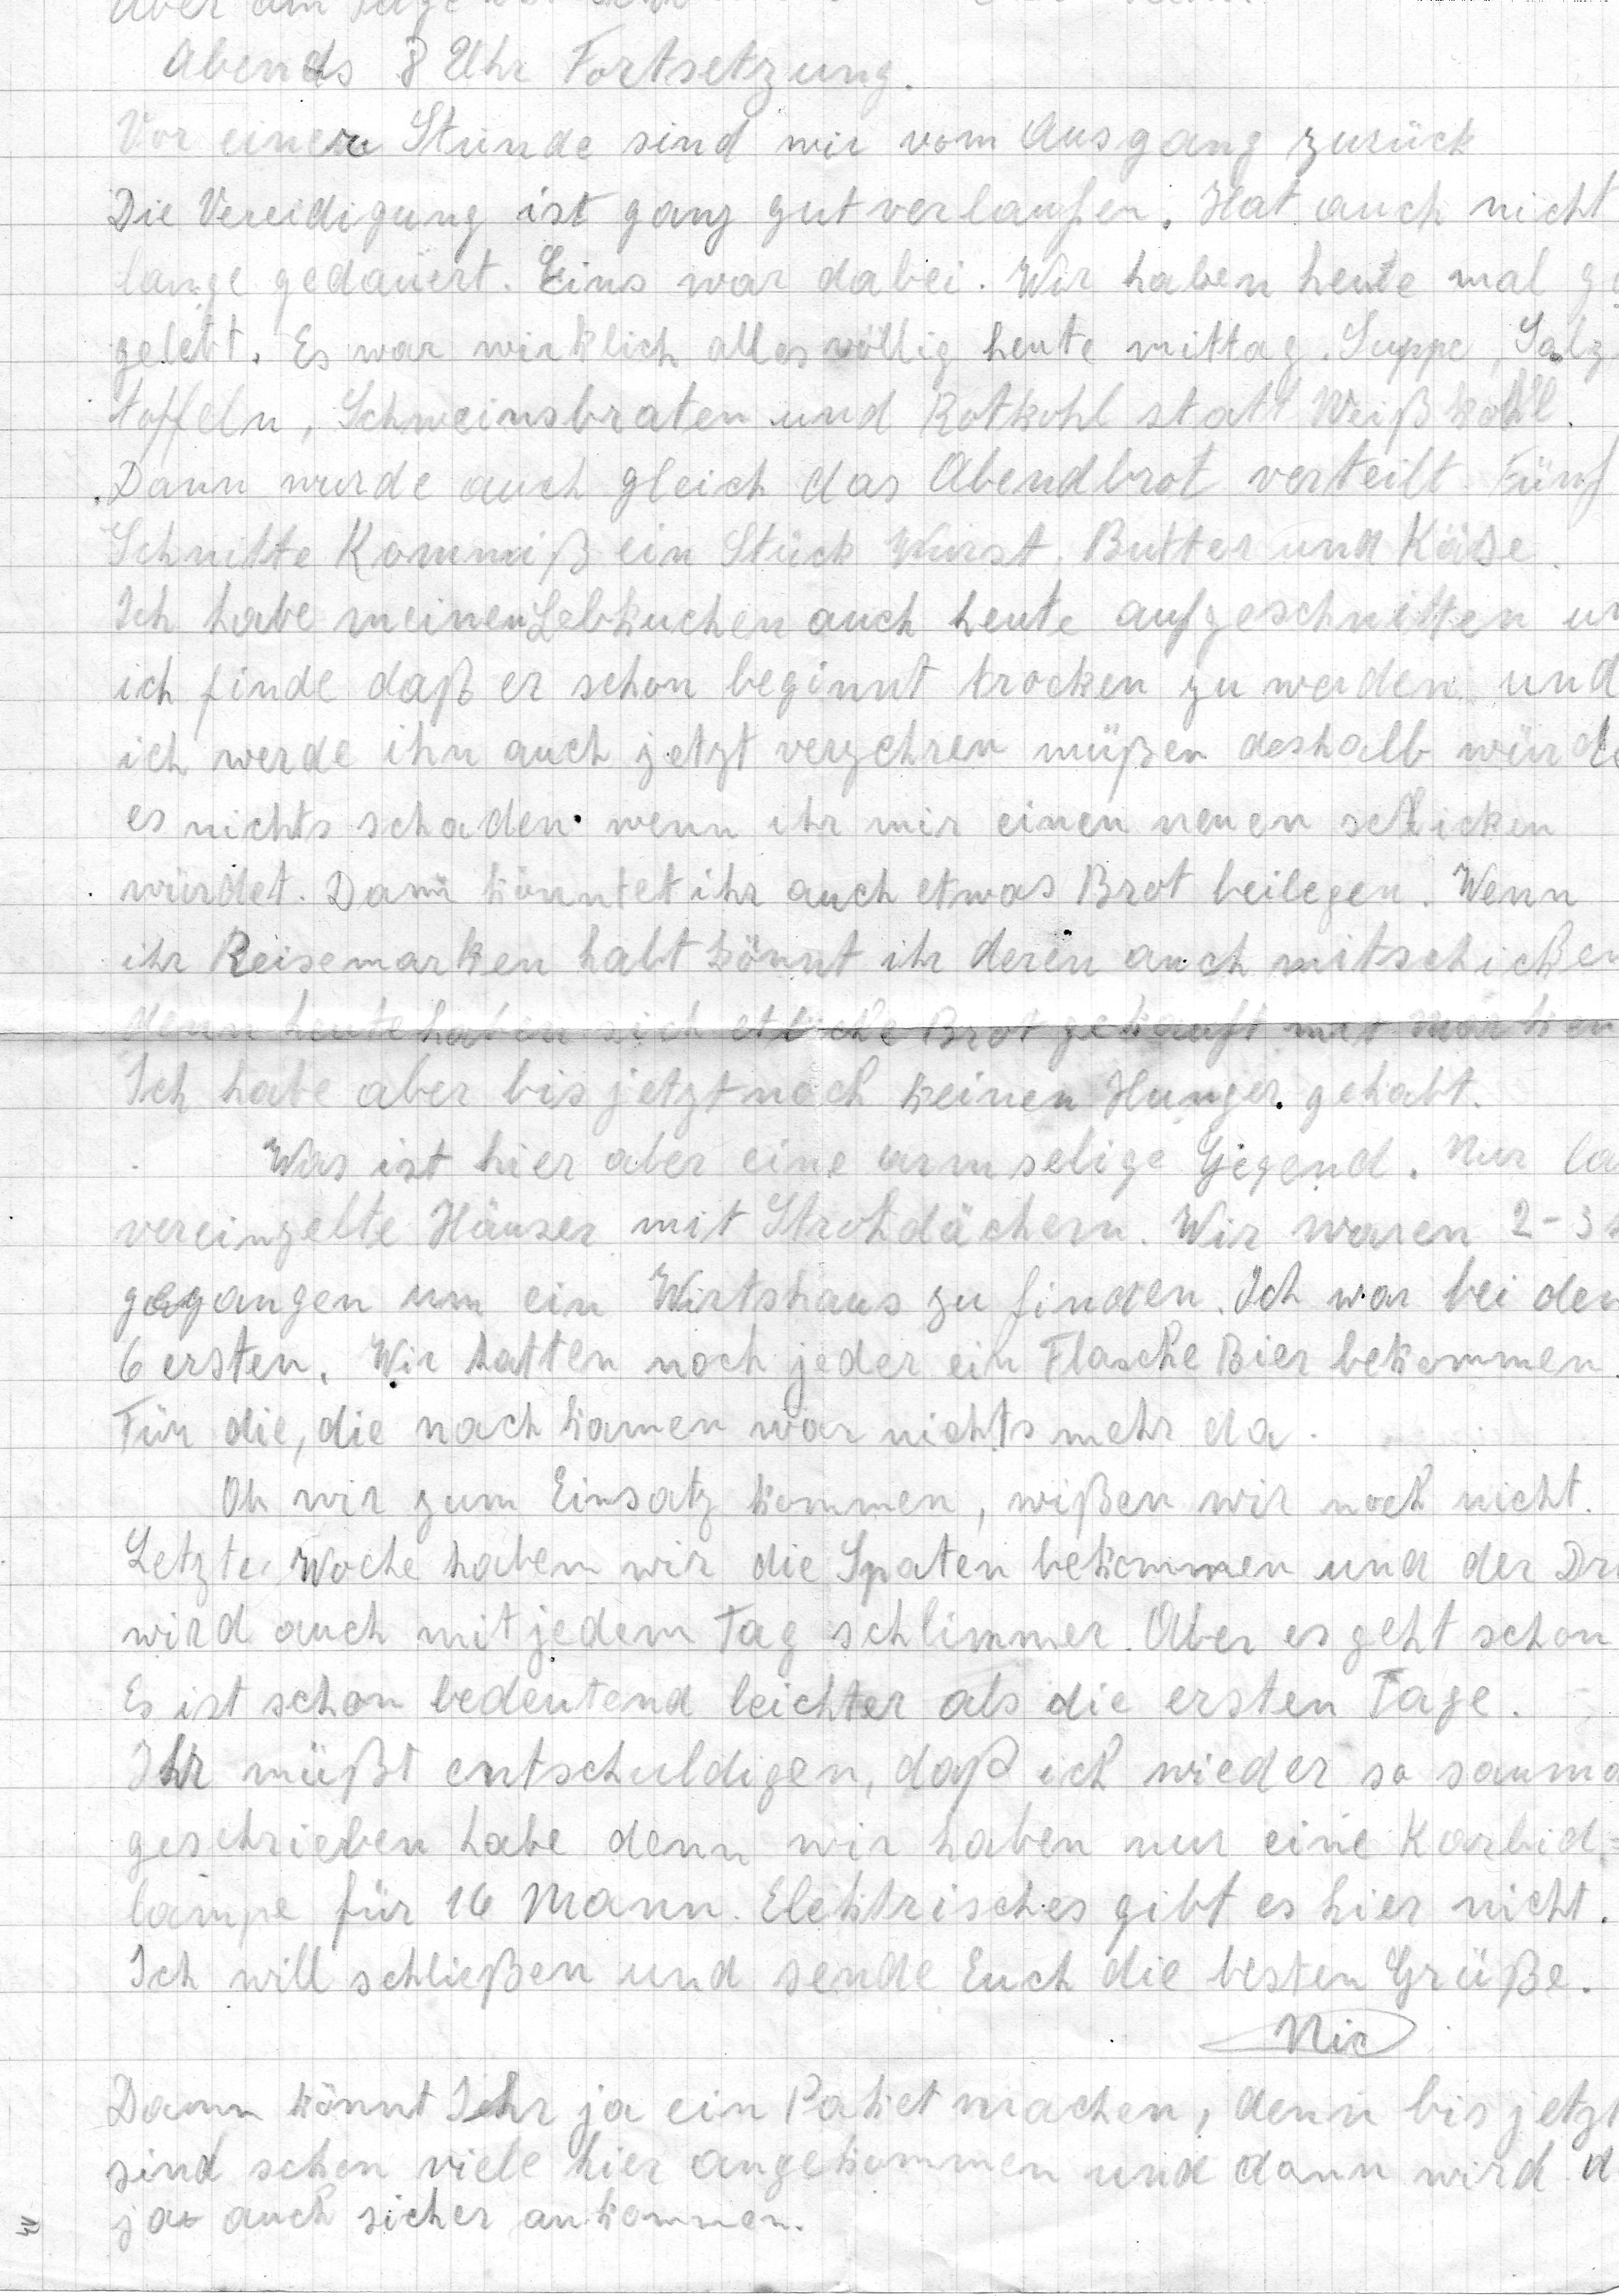 Aber am Tage
Abends 8 Uhr Fortsetzung.
Vor einer Stunde sind wir vom Ausgang zurück
Die Vereidigung ist ganz gut verlaufen. Hat auch nicht
lange gedauert. Eins war dabei. Wir haben heute mal
gelebt. Es war wirklich alles völlig heute mittag. Suppe, Salz
toffeln, Schweinsbraten und Rotkohl statt Weißkohl.
Dann wurde auch gleich das Abendbrot verteilt. Fünf
Schnitte Kommiß ein Stück Wurst, Butter und Käse.
Ich habe meinen Lebkuchen auch heute aufgeschnitten
ich finde daß er schon beginnt trocken zu werden und
ich werde ihn auch jetzt verzehren müßen deshalb würde
es nichts schaden wenn ihr mir einen neuen schicken
würdet. Dann könntet ihr auch etwas Brot beilegen. Wenn
ihr Reisemarken habt könnt ihr deren auch mitschicken
denn heute haben sich etliche Brot gekauft mit Marken
Ich habe aber bis jetzt noch keinen Hunger gehabt.
Was ist hier aber eine armselige Gegend. Nur
vereinzelte Häuser mit Strohdächern. Wir waren 2-3
gegangen um ein Wirtshaus zu finden. Ich war bei den
6 ersten. Wir hatten noch jeder ein Flasche Bier bekommen.
Für die, die nach kamen war nichts mehr da.
Ob wir zum Einsatz kommen, wißen wir noch nicht.
Letzte Woche haben wir die Spaten bekommen und der
wird auch mit jedem Tag schlimmer. Aber es geht schon
Es ist schon bedeutend leichter als die ersten Tage.
Ihr müßt entschuldigen, daß ich wieder so
geschrieben habe denn wir haben nur eine Karbid=
lampe für 16 Mann. Elektrisches gibt es hier nicht.
Ich will schließen und sende Euch die besten Grüße.
Nic
Dann könnt Ihr ja ein Paket machen, denn bis jetzt
sind schon viele hier angekommen und dann wird
ja auch sicher ankommen.